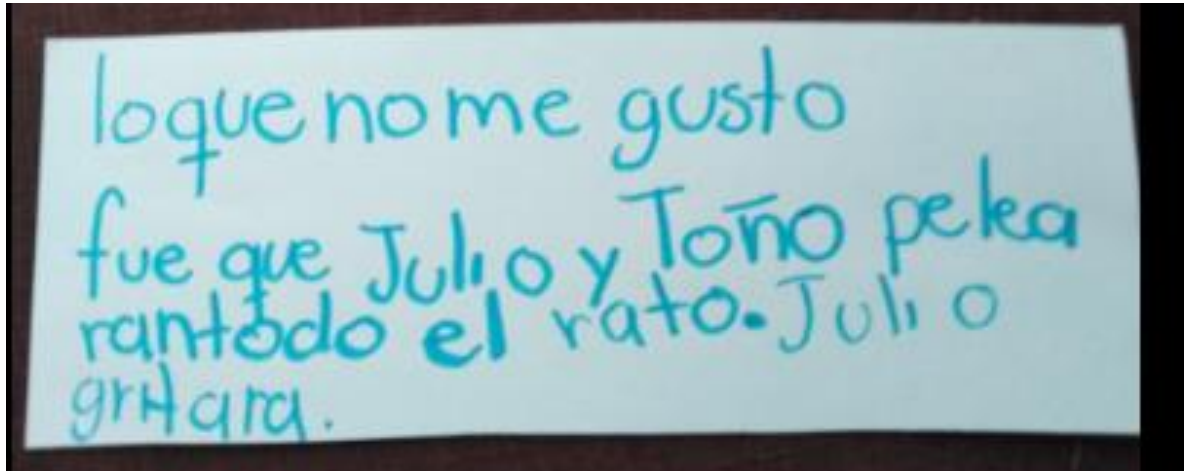 loque nome gusto
fue que Julio y Toño pelea
rantodo el rato. Julio
gritara.